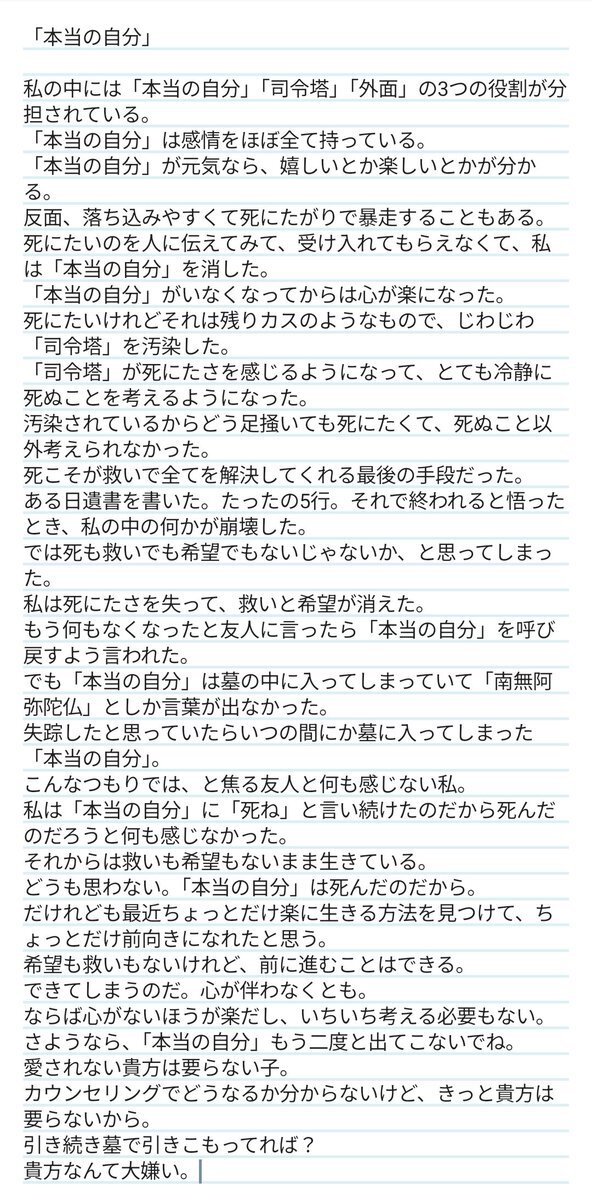 「本当の自分」
私の中には「本当の自分」「司令塔」「外面」の3つの役割が分
担されている。
「本当の自分」は感情をほぼ全て持っている。
「本当の自分」が元気なら、嬉しいとか楽しいとかが分か
る。
反面、落ち込みやすくて死にたがりで暴走することもある。
死にたいのを人に伝えてみて、受け入れてもらえなくて、私
は「本当の自分」を消した。
「本当の自分」がいなくなってからは心が楽になった。
死にたいけれどそれは残りカスのようなもので、じわじわ
「司令塔」を汚染した。
「司令塔」が死にたさを感じるようになって、とても冷静に
死ぬことを考えるようになった。
汚染されているからどう足掻いても死にたくて、死ぬこと以
外考えられなかった。
死こそが救いで全てを解決してくれる最後の手段だった。
ある日遺書を書いた。たったの5行。それで終われると悟った
とき、私の中の何かが崩壊した。
では死も救いでも希望でもないじゃないか、と思ってしまっ
た。
私は死にたさを失って、救いと希望が消えた。
もう何もなくなったと友人に言ったら「本当の自分」を呼び
戻すよう言われた。
でも「本当の自分」は墓の中に入ってしまっていて「南無阿
弥陀仏」としか言葉が出なかった。
失踪したと思っていたらいつの間にか墓に入ってしまった
「本当の自分」。
こんなつもりでは、と焦る友人と何も感じない私。
私は「本当の自分」に「死ね」と言い続けたのだから死んだ
のだろうと何も感じなかった。
それからは救いも希望もないまま生きている。
どうも思わない。「本当の自分」は死んだのだから。
だけれども最近ちょっとだけ楽に生きる方法を見つけて、ち
ょっとだけ前向きになれたと思う。
希望も救いもないけれど、前に進むことはできる。
できてしまうのだ。心が伴わなくとも。
ならば心がないほうが楽だし、いちいち考える必要もない。
さようなら、「本当の自分」もう二度と出てこないでね。
愛されない貴方は要らない子。
カウンセリングでどうなるか分からないけど、きっと貴方は
要らないから。
引き続き墓で引きこもってれば？
貴方なんて大嫌い。